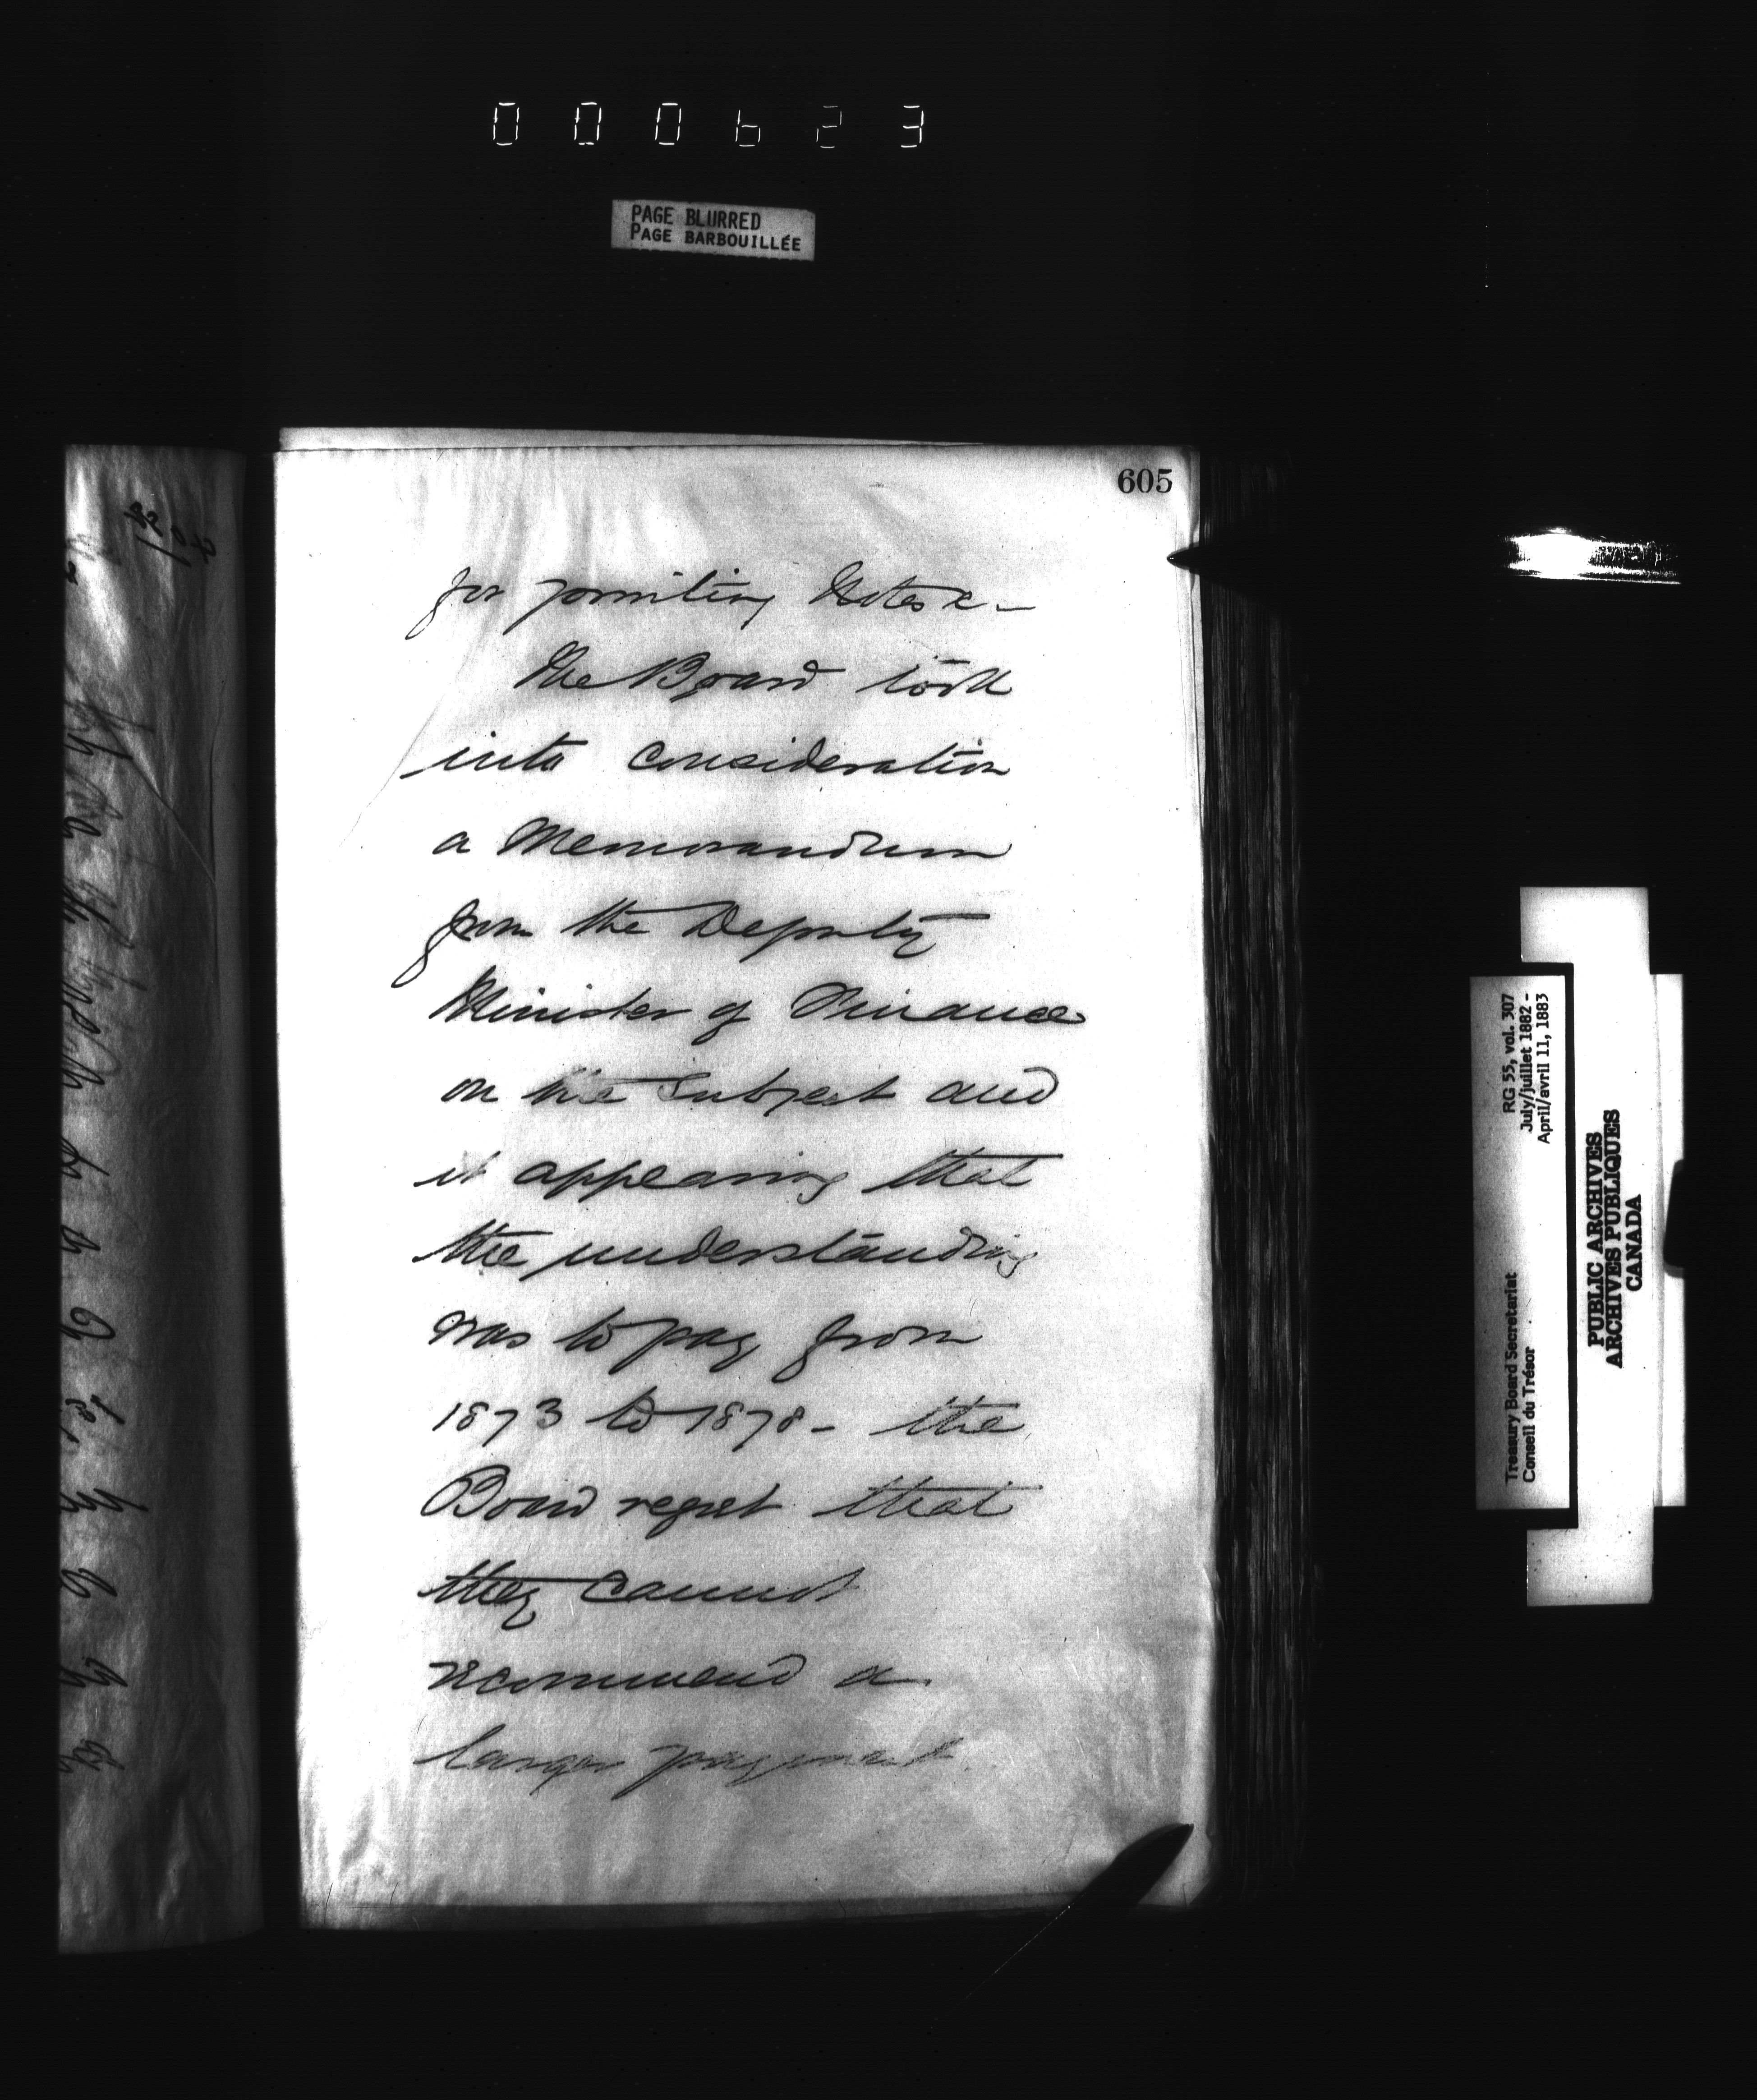 000623
PAGE BLURRED
PAGE BARBOUILLÉE
605
for printing Notes &c -
The Board took
into consideration
a Memorandum
from the Deputy
Minister of Finance
on the subject and
it appearing that
the understanding
was to pay from
1873 to 1878 - the
Board regret that
they cannot
recommend a
larger payment.
RG 55, vol. 307
July/juillet 1882 -
April/avril 11, 1883
Treasury Board Secretariat
Conseil du Trésor
PUBLIC ARCHIVES
ARCHIVES PUBLIQUES
CANADA